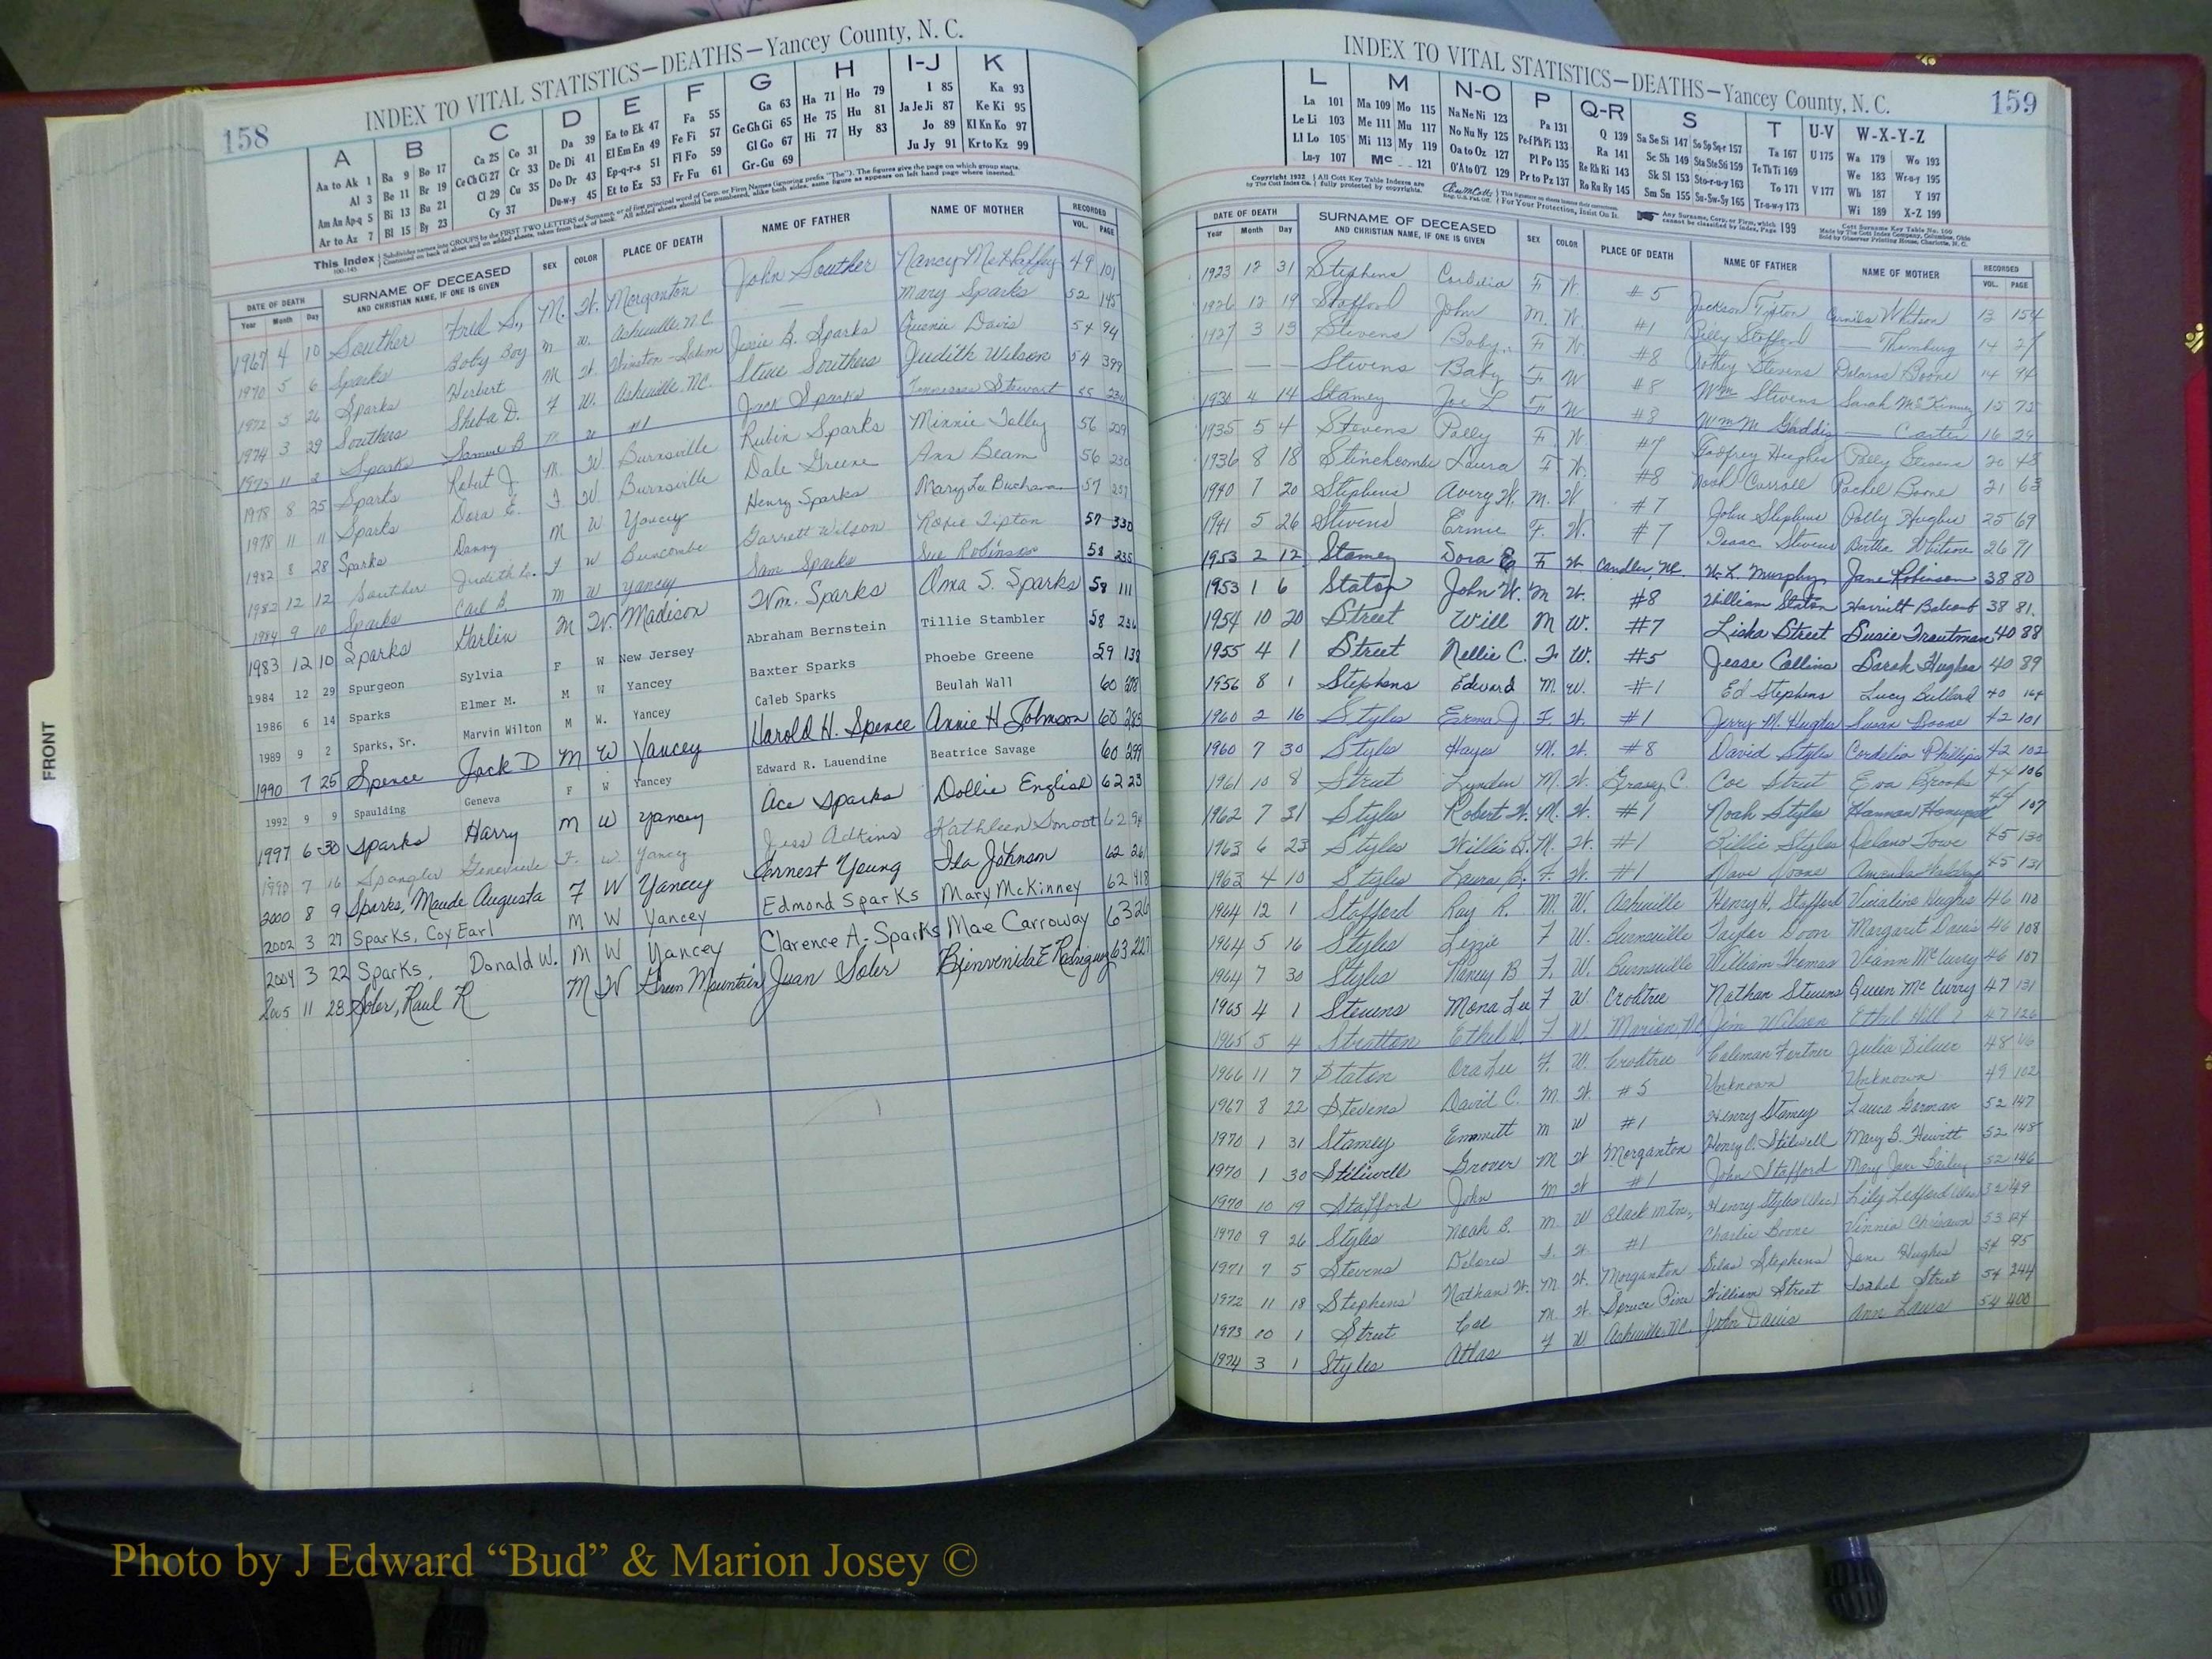 158
INDEX TO VITAL STATISTICS—DEATHS—Yancey County, N. C.
A B C D E F G H I-J K
Aa to Ak 1 Ba 9 Bo 17 Ca 25 Co 31 Da 39 Ea to Ek 47 Fa 55 Ga 63 Ha 71 Ho 79 I 85 Ka 93
Al 3 Be 11 Br 19 Ce Ch Ci 27 Cr 33 De Di 41 El Em En 49 Fe Fi 57 Ge Gh Gi 65 He 75 Hu 81 Ja Je Ji 87 Ke Ki 95
Am An Ap-q 5 Bi 13 Bu 21 Cl 29 Cu 35 Do Dr 43 Ep-q-r-s 51 Fl Fo 59 Gl Go 67 Hi 77 Hy 83 Jo 89 Kl Kn Ko 97
Ar to Az 7 Bl 15 By 23 Cy 37 Du-w-y 45 Et to Ez 53 Fr Fu 61 Gr-Gu 69 Ju Jy 91 Kr to Kz 99
This Index
DATE OF DEATH SURNAME OF DECEASED SEX COLOR PLACE OF DEATH NAME OF FATHER NAME OF MOTHER RECORDED
Year Month Day AND CHRISTIAN NAME, IF ONE IS GIVEN VOL. PAGE
1967 4 10 Souther Fred S., M. W. Morganton John Souther Nancy McHaffey 49 101
1970 5 6 Sparks Baby Boy M W. Asheville, N.C. — Mary Sparks 52 145
1972 3 26 Sparks Herbert M W. Winston-Salem Jessie B. Sparks Queenie Davis 54 94
1974 3 29 Southers Sheba D. F W. Asheville, N.C. Steve Southers Judith Wilson 54 399
1975 11 2 Sparks Sammie B #1 Jack Sparks Tennessee Stewart 55
1978 8 25 Sparks Robert J. M. W Burnsville Rubin Sparks Minnie Tolley 56 229
1978 11 11 Sparks Dora E. F. W Burnsville Dale Greene Ann Beam 56 230
1982 8 28 Sparks Danny M W Yancey Henry Sparks Mary Lee Buchanan 57 257
1982 12 12 Souther Judith L. F W Buncombe Garrett Wilson Roxie Tipton 57 330
1984 9 10 Sparks Carl B. M W Yancey Sam Sparks Sue Robinson 58 235
1983 12 10 Sparks Harlin M W. Madison Wm. Sparks Oma S. Sparks 58 111
1984 12 29 Spurgeon Sylvia F W New Jersey Abraham Bernstein Tillie Stambler 58 236
1986 6 14 Sparks Elmer M. M W Yancey Baxter Sparks Phoebe Greene 59 138
1989 9 2 Sparks, Sr. Marvin Wilton M W. Yancey Caleb Sparks Beulah Wall 60 278
1990 7 25 Spence Jack D M W Yancey Harold H. Spence Annie H. Johnson 60 285
1992 9 9 Spaulding Geneva F W Yancey Edward R. Lauendine Beatrice Savage 60 299
1997 6 30 Sparks Harry M W Yancey Ace Sparks Dollie English 62 23
7 16 Spangler Genevieve F. W. Yancey Jess Adkins Kathleen Smoot 62 94
2000 8 9 Sparks, Maude Augusta F W Yancey Earnest Young Ila Johnson 62 261
2002 3 27 Sparks, Coy Earl M W Yancey Edmond Sparks Mary McKinney 62 418
2004 3 22 Sparks, Donald W. M W Yancey Clarence A. Sparks Mae Carroway 63 26
2005 11 28 Soler, Raul R M W Green Mountain Juan Soler Bienvenida E Rodriguez 63 227
FRONT
INDEX TO VITAL STATISTICS—DEATHS—Yancey County, N. C.
159
L M N-O P Q-R S T U-V W-X-Y-Z
La 101 Ma 109 Mo 115 Na Ne Ni 123 Pa 131 Q 139 Sa Se Si 147 So Sp Sq-r 157 Ta 167 U 175 Wa 179 Wo 193
Le Li 103 Me 111 Mu 117 No Nu Ny 125 Pe-f Ph Pi 133 Ra 141 Sc Sh 149 Sta Ste Sti 159 Te Th Ti 169 We 183 Wr-u-y 195
Ll Lo 105 Mi 113 My 119 Oa to Oz 127 Pl Po 135 Re Rh Ri 143 Sk Sl 153 Sto-r-u-y 163 To 171 V 177 Wh 187 Y 197
Lu-y 107 Mc 121 O'A to O'Z 129 Pr to Pz 137 Ro Ru Ry 145 Sm Sn 155 Su-Sw-Sy 165 Tr-u-w-y 173 Wi 189 X-Z 199
DATE OF DEATH SURNAME OF DECEASED SEX COLOR PLACE OF DEATH NAME OF FATHER NAME OF MOTHER RECORDED
Year Month Day AND CHRISTIAN NAME, IF ONE IS GIVEN VOL. PAGE
1923 12 31 Stephens Cordelia F W #5 Jackson Tipton Whitson 13 154
1926 12 19 Stafford John M. W. #1 Billy Stafford — Thornburg 14 27
1927 3 13 Stevens Baby F W. #8 Stevens Delores Boone 14 94
— — — Stevens Baby F W #8 Wm Stevens Sarah McKinney 15 75
1930 4 14 Stamey Joe L F W #8 Wm M Gaddis — Carter 16 29
1935 5 4 Stevens Polly F. W. #7 Godfrey Hughes Polly Stevens 20 48
1936 8 18 Stinchcombe Laura F W. #8 Noah Carroll Rachel Boone 21 63
1940 7 20 Stephens Avery W. M. W #7 John Stephens Polly Hughes 25 69
1941 5 26 Stevens Ermie F. W. #7 Isaac Stevens Bertha Whitson 26 91
1953 2 12 Stamey Dora E F W Candler, NC. W. L. Murphy Jane Robinson 38 80
1953 1 6 Staton John W. M W. #8 William Staton Harriett Balcomb 38 81.
1954 10 20 Street Will M W. #7 Liska Street Susie Trautman 40 88
1955 4 1 Street Nellie C. F W. #5 Jesse Collins Sarah Hughes 40 89
1956 8 1 Stephens Edward M. W. #1 Ed Stephens Lucy Bullard 40 164
1960 2 16 Styles Erma J F. W. #1 Jerry M. Hughes Susan Boone 42 101
1960 7 30 Styles Hayes M. W. #8 David Styles Cordelia Phillips 42 102
1961 10 8 Street Lynden M. W. Grassy C. Coe Street Eva Brooks 44 106
1962 7 31 Styles Robert W. M. W. #1 Noah Styles Hannah Honeycutt 44 107
1963 6 23 Styles Willie B. M. W. #1 Billie Styles 45 130
1963 4 10 Styles Laura B. F. W. #1 Dave Boone 45 131
1964 12 1 Stafford Ray R. M. W. Asheville Henry H. Stafford Hughes 46 110
1964 5 16 Styles Lizzie F W. Burnsville Margaret Davis 46 108
1964 7 30 Styles Nancy B F. W. Burnsville William Thomas McCurry 46 107
1965 4 1 Stevens Mona Lee F W. Crabtree Nathan Stevens Queen McCurry 47 131
1965 5 4 Stratton Ethel W. F W. Marion, N.C. Jim Wilson Ethel Hill 47 126
1966 11 7 Staton Ora Lee F. W. Crabtree Coleman Fortner Julia Silver 48 116
1967 8 22 Stevens David C. M W. #5 Unknown Unknown 49 102
1970 1 31 Stamey Emmett M W #1 Henry Stamey Laura Gorman 52 147
1970 1 30 Stilwell Grover M W Morganton Henry O. Stilwell Mary B. Hewitt 52 148
1970 10 19 Stafford John M W #1 John Stafford Mary Jane Bailey 52 146
1970 9 26 Styles Noah B. M. W Black Mtn., Henry Styles (Dec) Lily Ledford (Dec) 52 149
1971 7 5 Stevens Delores F. W. #1 Charlie Boone Vinnia Chrisawn 53 124
1972 11 18 Stephens Nathan W. M W. Morganton Silas Stephens Jane Hughes 54 95
1973 10 1 Street Coe M. W. Spruce Pine William Street Isabel Street 54 244
1974 3 1 Styles Atlas F W. Asheville, N.C. John Davis Ann Laws 54 400
Photo by J Edward “Bud” & Marion Josey ©